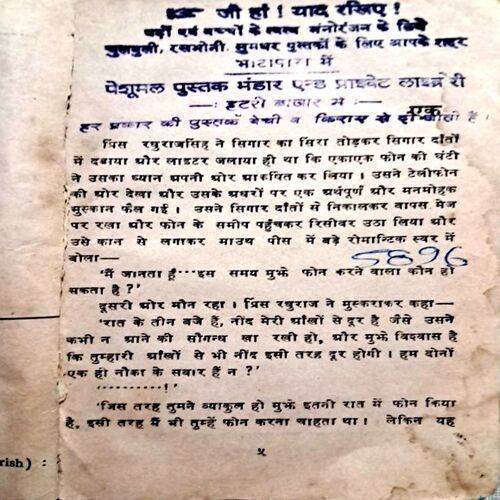 जी हां ! याद रखिए !
बड़ों एवं बच्चों के स्वस्थ मनोरंजन के लिये
चुलबुली, रसभीनी, सुमधुर पुस्तकों के लिए आपके शहर
भाटापारा में
पेशूमल पुस्तक भंडार एन्ड प्राइवेट लाइब्रेरी
—: हटरी बाजार में :—
एक
हर प्रकार की पुस्तकें बेची व किराए से दी जाती है।
प्रिंस रघुराजसिंह ने सिगार का सिरा तोड़कर सिगार दाँतों
में दबाया और लाइटर जलाया ही था कि एकाएक फोन की घंटी
ने उसका ध्यान अपनी ओर आकर्षित कर लिया । उसने टेलीफोन
की ओर देखा और उसके अधरों पर एक अर्थपूर्ण और मनमोहक
मुस्कान फैल गई । उसने सिगार दाँतों से निकालकर वापस मेज
पर रखा और फोन के समीप पहुँचकर रिसीवर उठा लिया और
उसे कान से लगाकर माउथ पीस में बड़े रोमान्टिक स्वर में
बोला—
5896
'मैं जानता हूँ···इस समय मुझे फोन करने वाला कौन हो
सकता है ?'
दूसरी ओर मौन रहा । प्रिंस रघुराज ने मुस्कराकर कहा—
'रात के तीन बजे हैं, नींद मेरी आँखों से दूर है जैसे उसने
कभी न आने की सौगन्ध खा रखी हो, और मुझे विश्वास है
कि तुम्हारी आँखों से भी नींद इसी तरह दूर होगी । हम दोनों
एक ही नौका के सवार हैं न ?'
'·········!'
'जिस तरह तुमने व्याकुल हो मुझे इतनी रात में फोन किया
है, इसी तरह मैं भी तुम्हें फोन करना चाहता था । लेकिन यह
rish) :
५